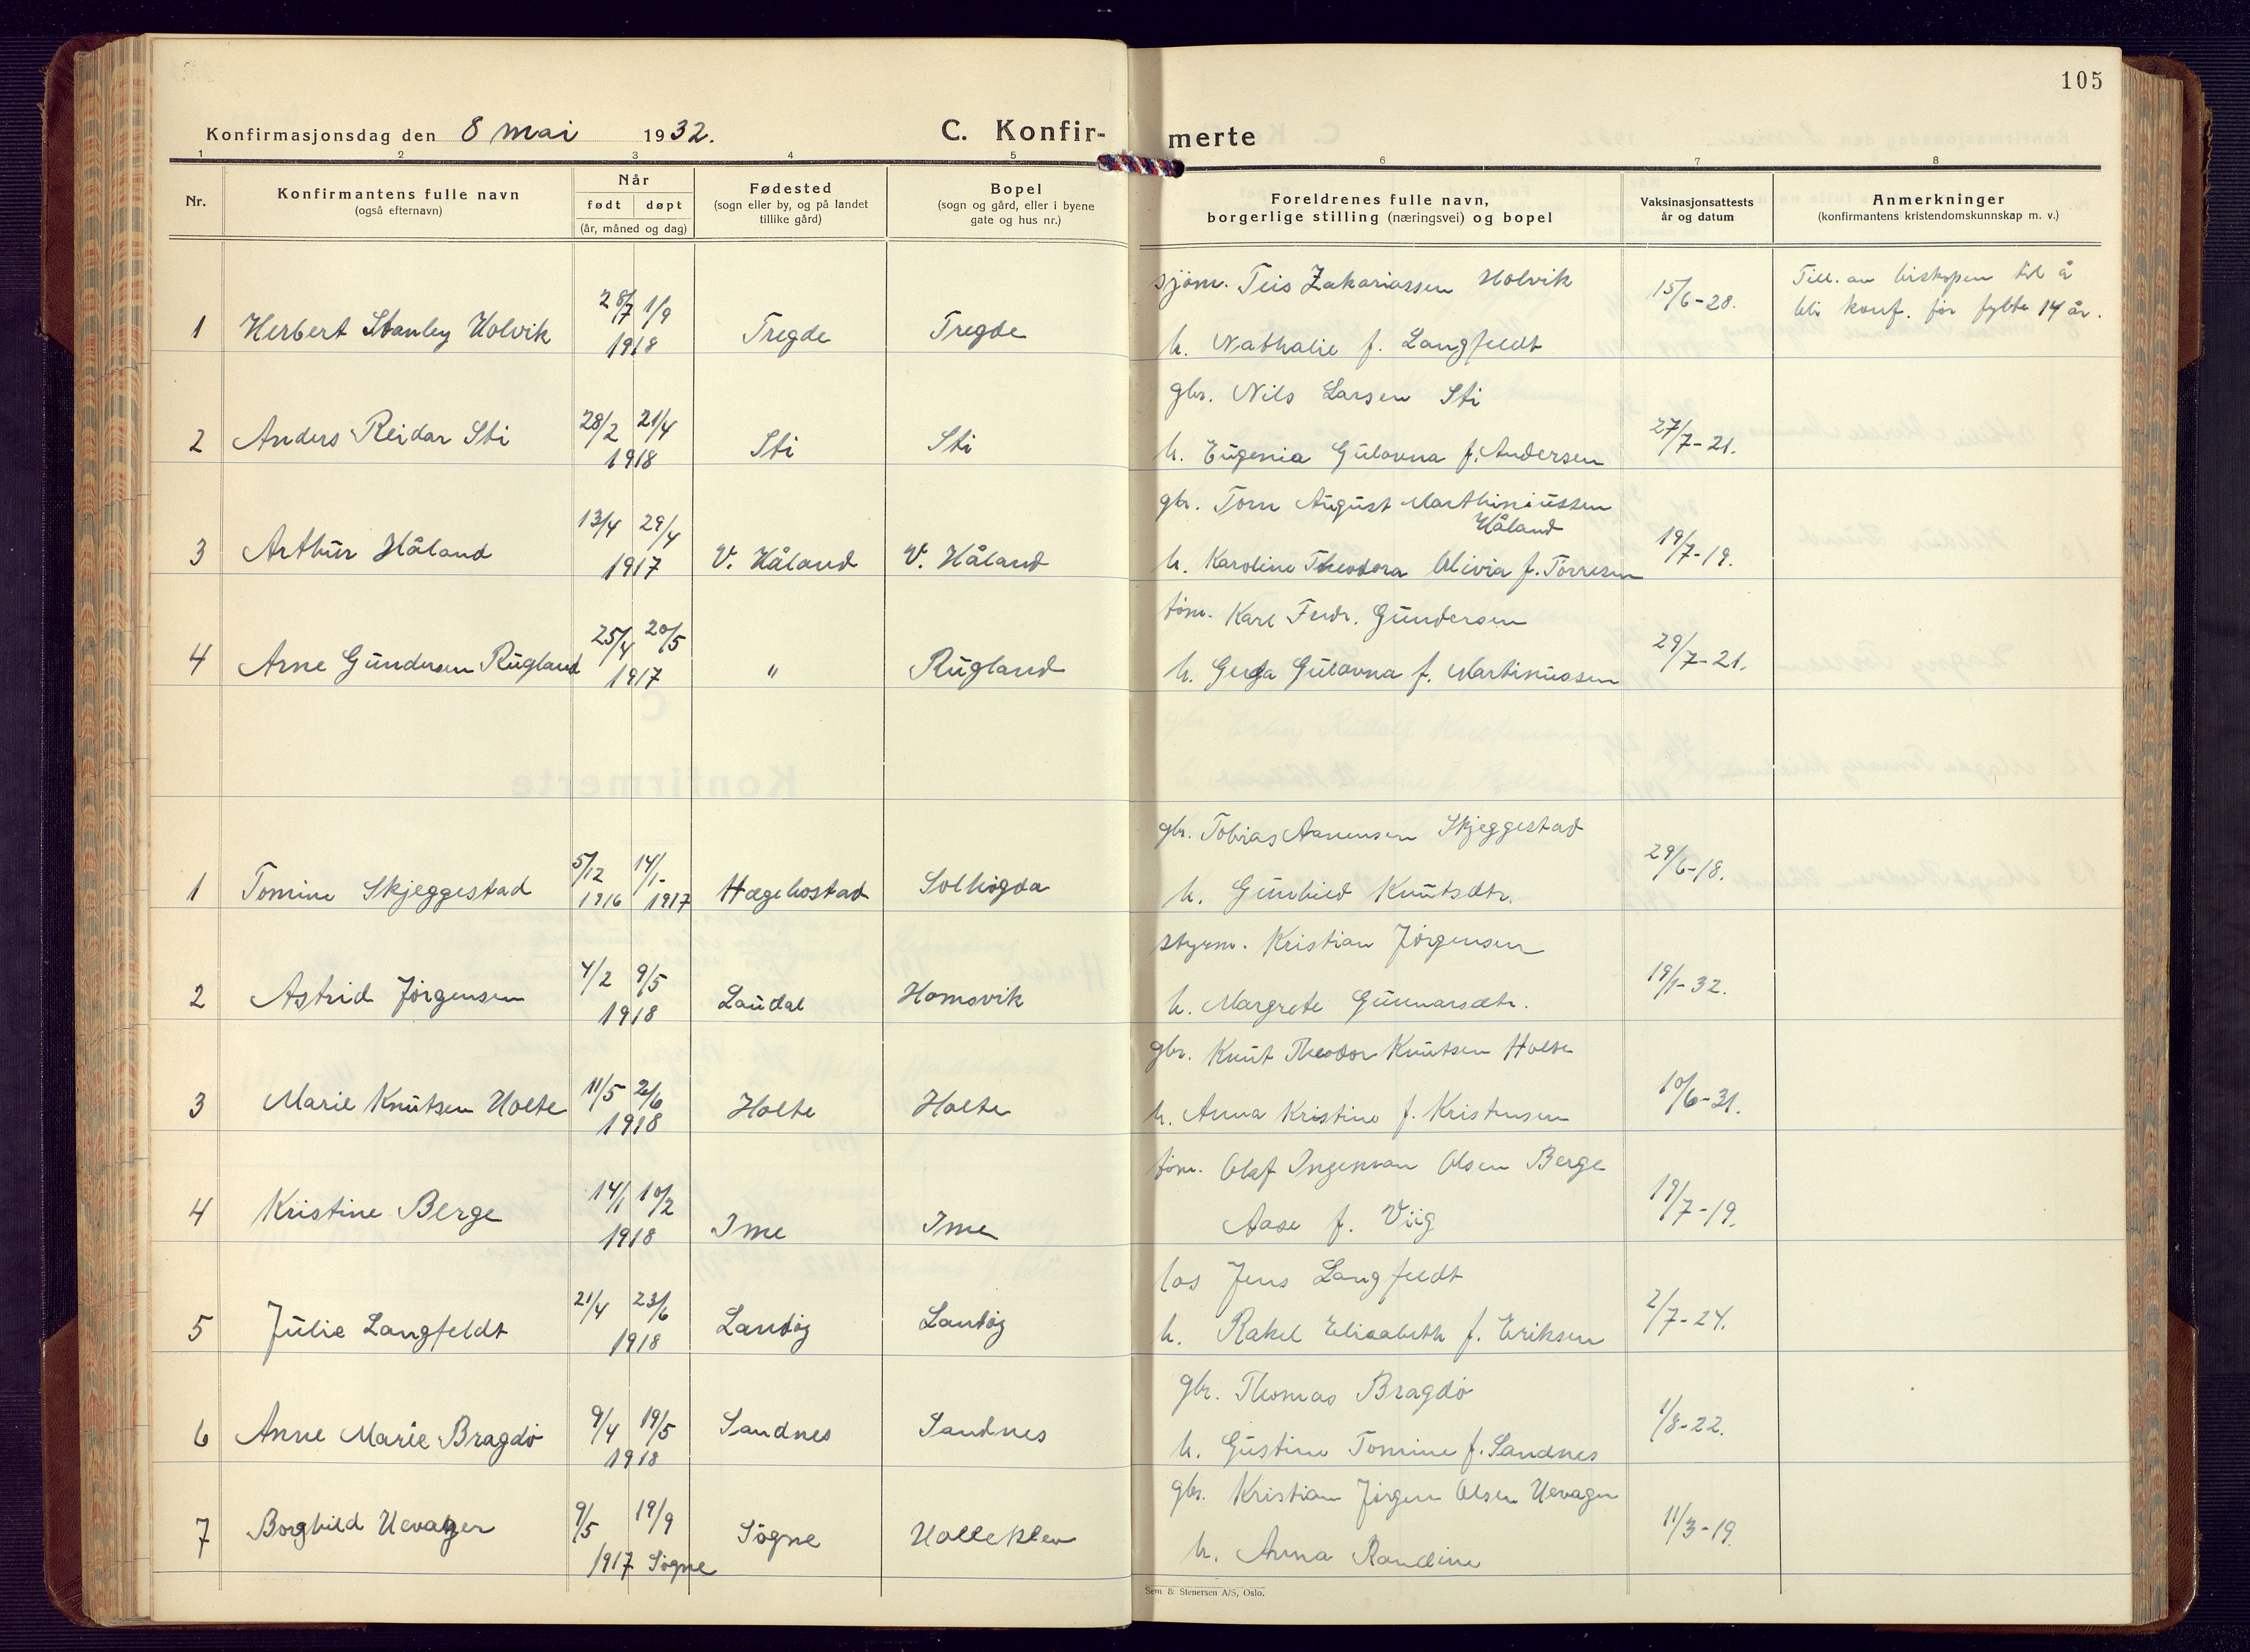 105
Konfirmasjonsdag den 8 mai 1932. C. Konfir- merte
1 2 3 4 5 6 7 8
Nr. Konfirmantens fulle navn (også efternavn) Når født døpt (år, måned og dag) Fødested (sogn eller by, og på landet tillike gård) Bopel (sogn og gård, eller i byene gate og hus nr.) Foreldrenes fulle navn, borgerlige stilling (næringsvei) og bopel Vaksinasjonsattests år og datum Anmerkninger (konfirmantens kristendomskunnskap m. v.)
sjøm. Teis Zakariassen Holvik Till. av biskopen til å
1 Herbert Stanley Holvik 28/7 1/9 1918 Tregde Tregde 15/6-28. bli konf. før fylte 14 år.
h. Nathalie f. Langfeldt
gbr. Nils Larsen Sti
2 Anders Reidar Sti 28/2 21/4 1918 Sti Sti 27/7-21.
h. Eugenia Gulovna f. Andersen
gbr. Tom August Marthiniussen Håland
3 Arthur Håland 13/4 29/4 1917 V. Håland V. Håland 19/7-19.
h. Karoline Theodora Olivia f. Torresen
tøm. Karl Fredr. Gundersen
4 Arne Gundersen Rugland 25/4 20/5 1917 " Rugland 29/7-21.
h. Gulovna f. Martinussen
gbr. Tobias Aanensen Skjeggestad
1 Tomine Skjeggestad 5/12 1916 14/1- 1917 Hægebostad Solhøgda 29/6-18.
h. Gunhild Knutsdtr.
styrm. Kristian Jørgensen
2 Astrid Jørgensen 4/2 9/5 1918 Laudal Homsvik 19/1-32.
h. Margrete Gunnarsdtr.
gbr. Knut Theodor Knutsen Holte
3 Marie Knutsen Holte 11/5 2/6 1918 Holte Holte 10/6-31.
h. Anna Kristine f. Kristensen
tøm. Olaf Ingeman Olsen Berge
4 Kristine Berge 14/1 10/2 1918 Ime Ime 19/7-19.
Aase f. Viig
los Jens Langfeldt
5 Julie Langfeldt 21/4 23/6 1918 Landøy Landøy 2/7-24.
h. Rakel Elisabeth f. Eriksen
gbr. Thomas Bragdø
6 Anne Marie Bragdø 9/4 19/5 1918 Sandnes Sandnes 1/8-22.
h. Gustine Tomine f. Sandnes
gbr. Kristian Jørgen Olsen Uevager
7 Borghild Uevager 9/5 19/9 1917 Søgne SøgneHolleklev 11/3-19.
h. Anna Randine
Sem & Stenersen A/S, Oslo.